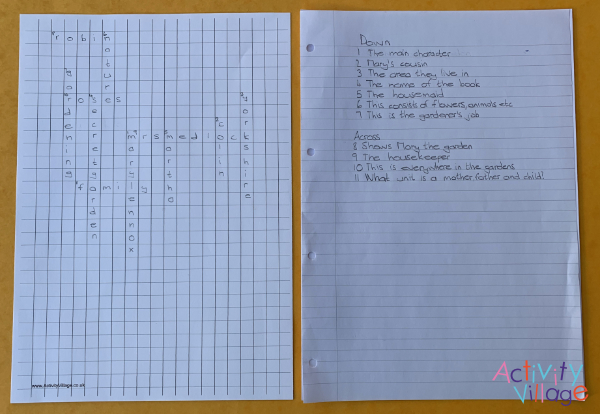 robin
nature
gardening
roses
secretgarden
yorkshire
colin
mrsmedlock
marylennox
martha
family
www.ActivityVillage.co.uk
Down
1 The main character
2 Mary's cousin
3 The area they live in
4 The name of the book
5 The housemaid
6 This consists of flowers, animals etc
7 This is the gardener's job
Across
8 Shows Mary the garden
9 The housekeeper
10 This is everywhere in the gardens
11 What unit is a mother father and child?
Activity
Village